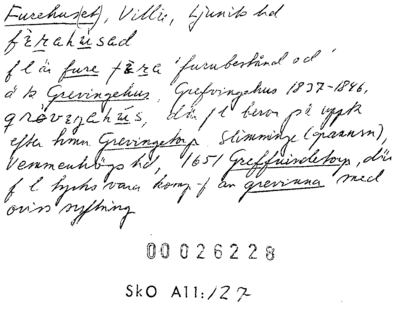 Furehus(et), Villie, Ljunits hd
fɛ̀rahúsad
f l är fure fɛ̀ra 'furubestånd od'
ä k Grevingehus, Grefvingehus 1837-1846,
grövɛŋahús, där f l beror på uppk
efter hmn Grevingetorp Slimminge (grannsn),
Vemmenhögs hd, 1651 Greffuindetorp, där
f l tycks vara komp-f an grevinna med
oviss syftning
00026228
SkO A11:127